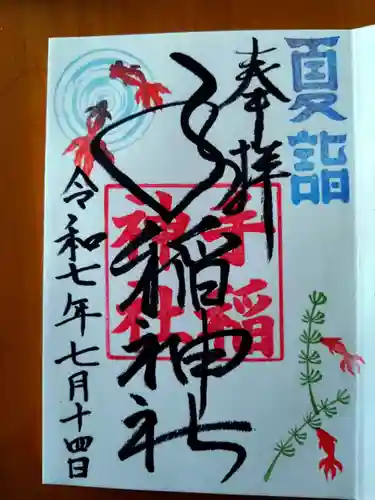 夏詣
奉拝
子稲神社
子稲
神社
令和七年七月十四日